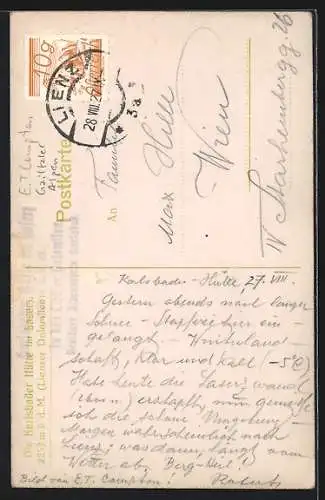 10g
LIENZ
28 VIII 2
* 3a
E.T. Compton
Gailtaler
Alpen
Postkarte
An
Familie
Max Hille
Wien
IV Starhembergg. 26
Die Karlsbader Hütte im Laserz.
2252 m ü. d. M. (Lienzer Dolomiten)
Karlsbader-Hütte, 27. VIII.
Gestern abends nach langer
Schnee-Stapferei hier ein-
gelangt. Winterland-
schaft, klar und kalt (-5°C)
Habe heute die Laserzwand
erstapft, nun genieße
ich die schöne Umgebung.
Morgen wahrscheinlich nach
Lienz; was dann, hängt vom
Wetter ab. Berg-Heil!
Bild von E.T. Compton! Robert